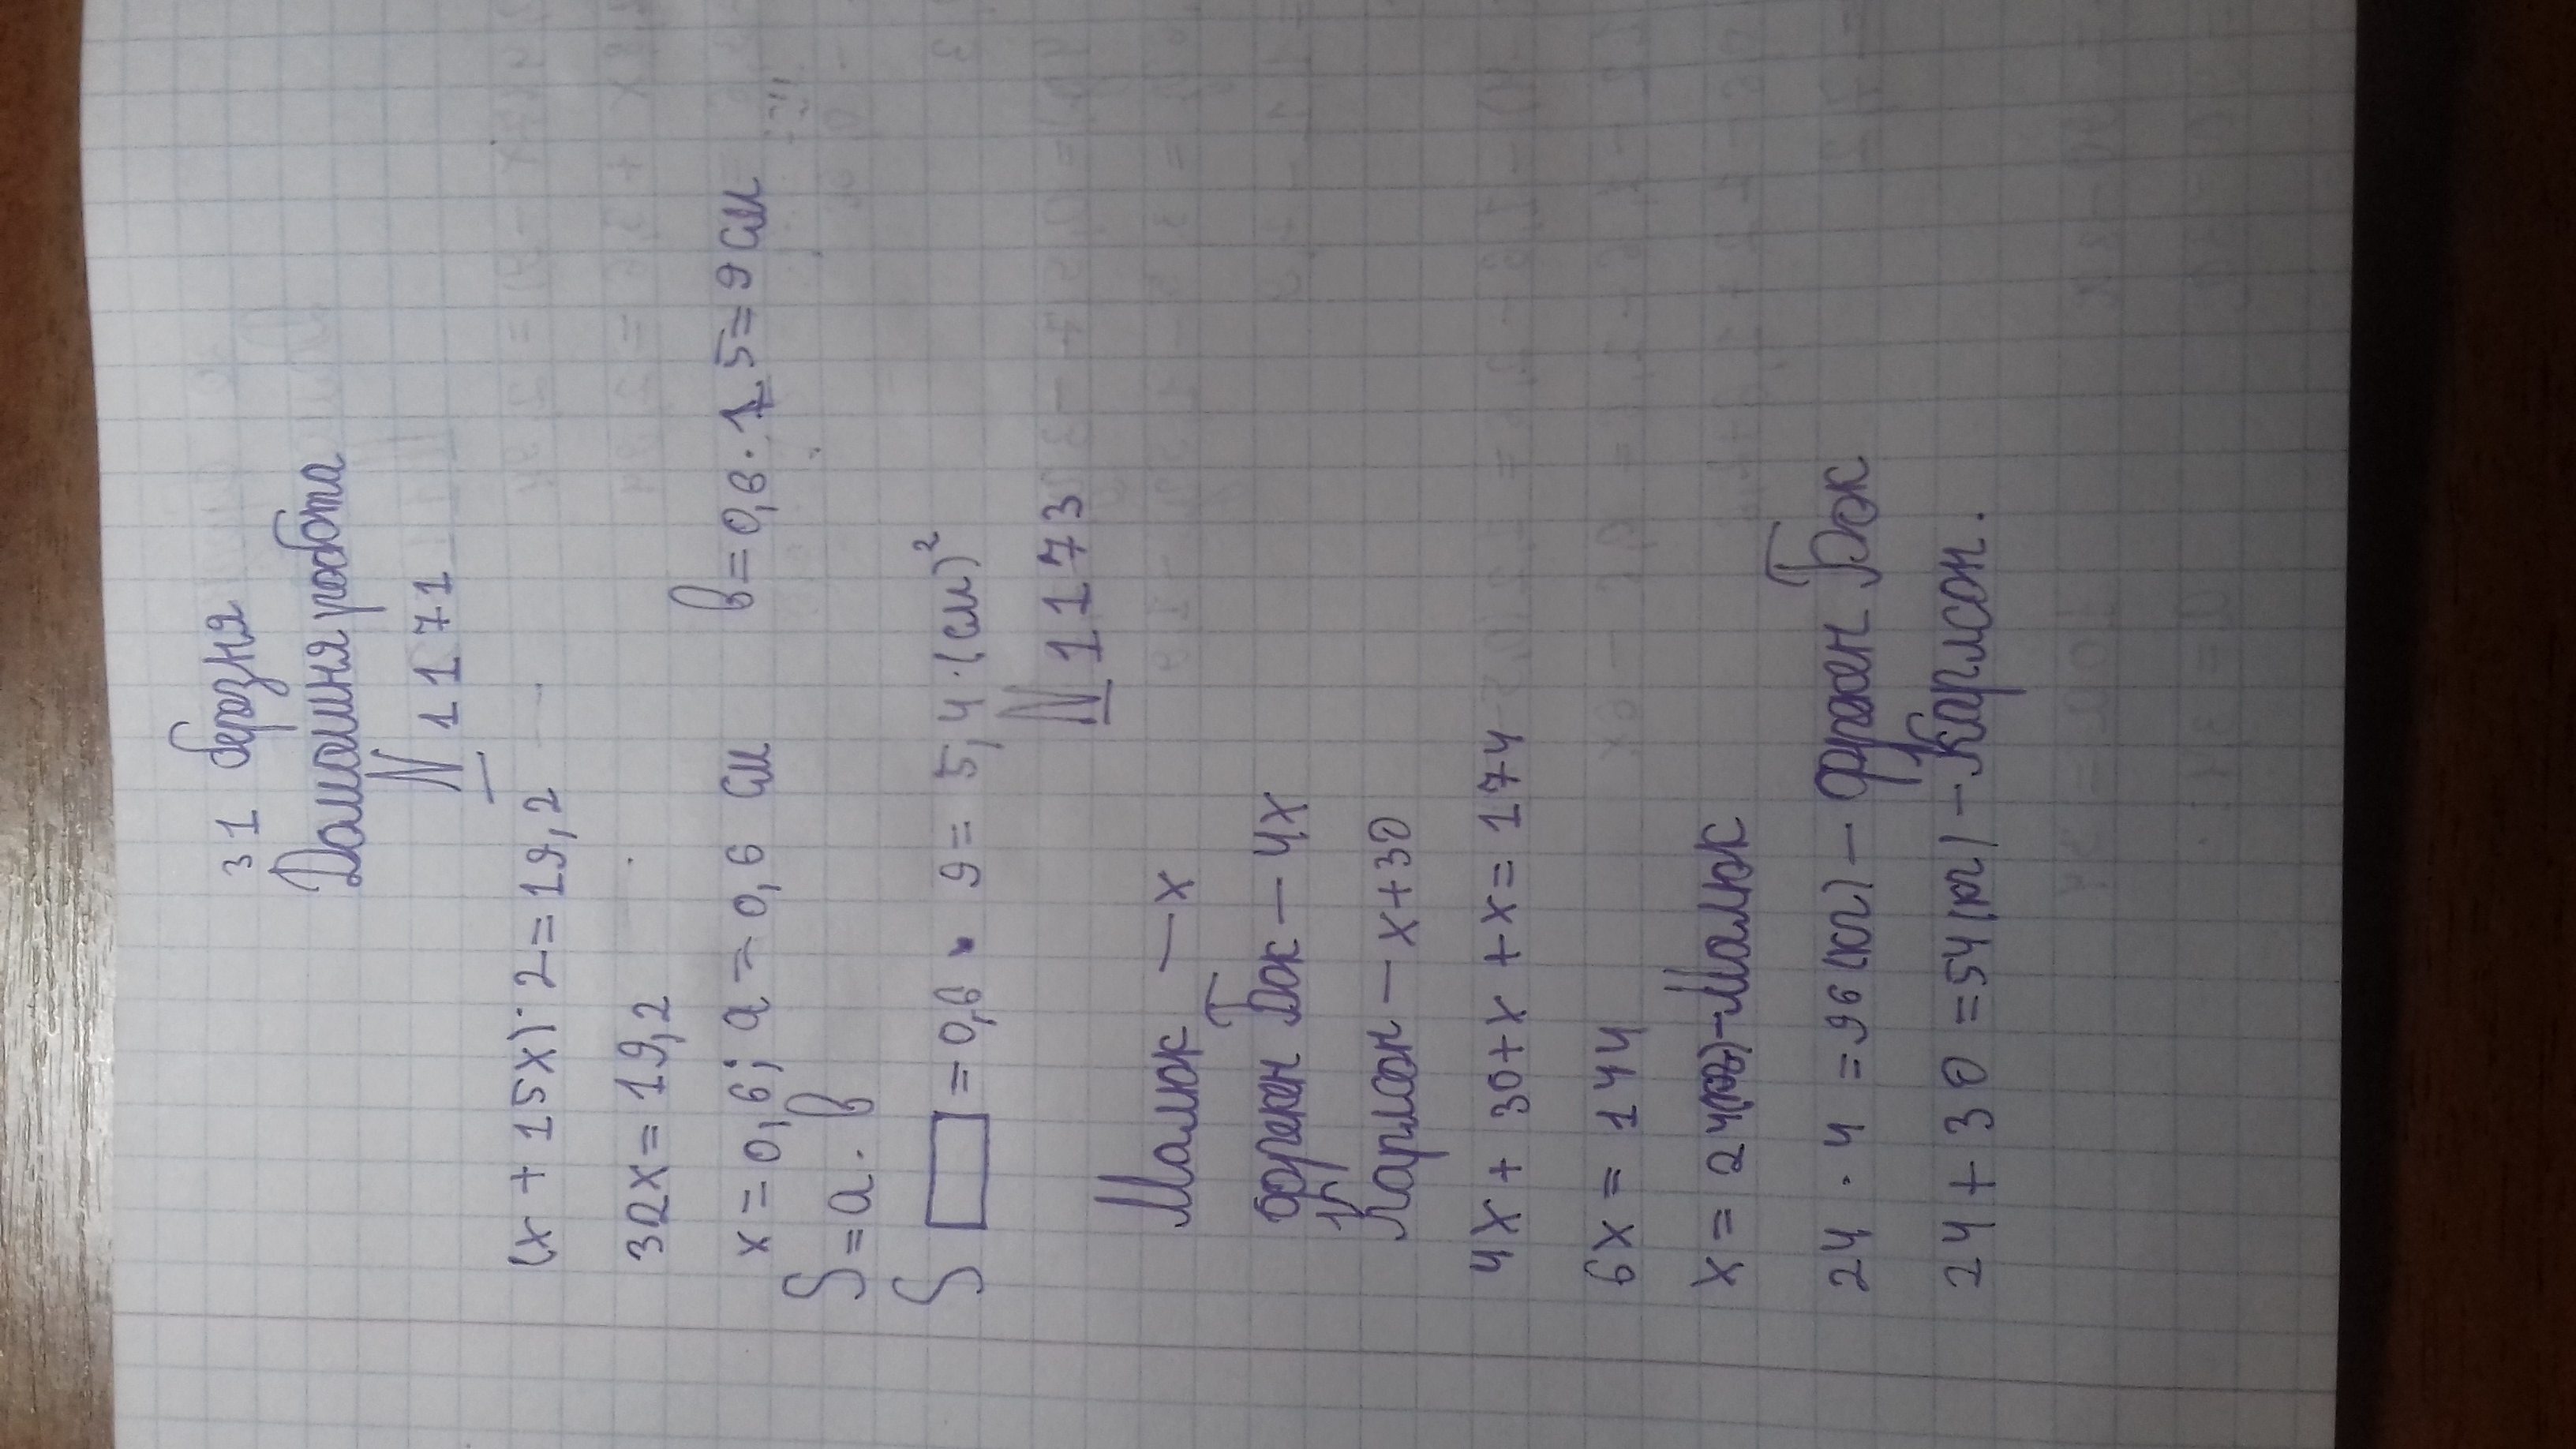 31 березня
Домашня работа
№ 1171
(x + 15x) · 2 = 19,2
32x = 19,2
x = 0,6; a = 0,6 см в = 0,6 · 15 = 9 см
S = a · в
S ▭ = 0,6 · 9 = 5,4 · (см)²
№ 1173
Малюк — x
фрекен Бок — 4x
Карлсон — x + 30
4x + 30 + x + x = 174
6x = 144
x = 24 (кг) – Малюк
24 · 4 = 96 (кг) – фрекен Бок
24 + 30 = 54 (кг) – Карлсон.